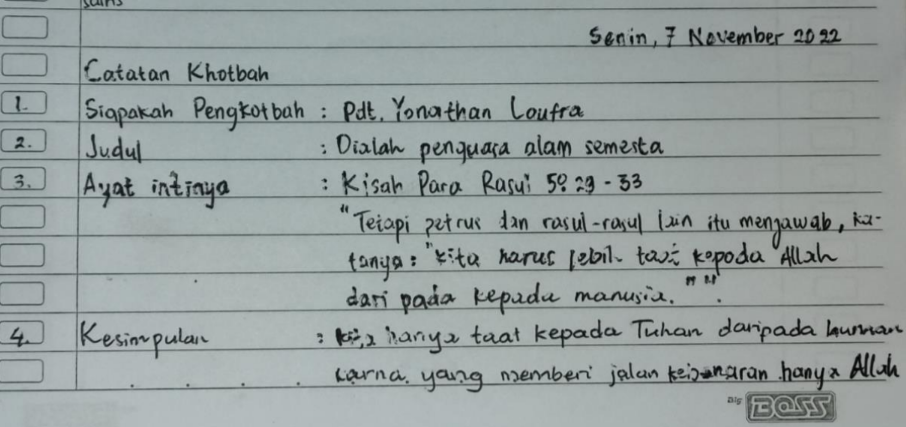 sains
Senin, 7 November 2022
Catatan Khotbah
1. Siapakah Pengkotbah : Pdt. Yonathan Loufra
2. Judul : Dialah penguasa alam semesta
3. Ayat intinya : Kisah Para Rasul 5: 29 - 33
"Tetapi petrus dan rasul-rasul lain itu menjawab, ka-
tanya: "kita harus lebih taat kepoda Allah
dari pada kepada manusia. " ".
4. Kesimpulan : kita hanya taat kepada Tuhan daripada
karna. yang memberi jalan kebenaran hanya Allah
BOSS